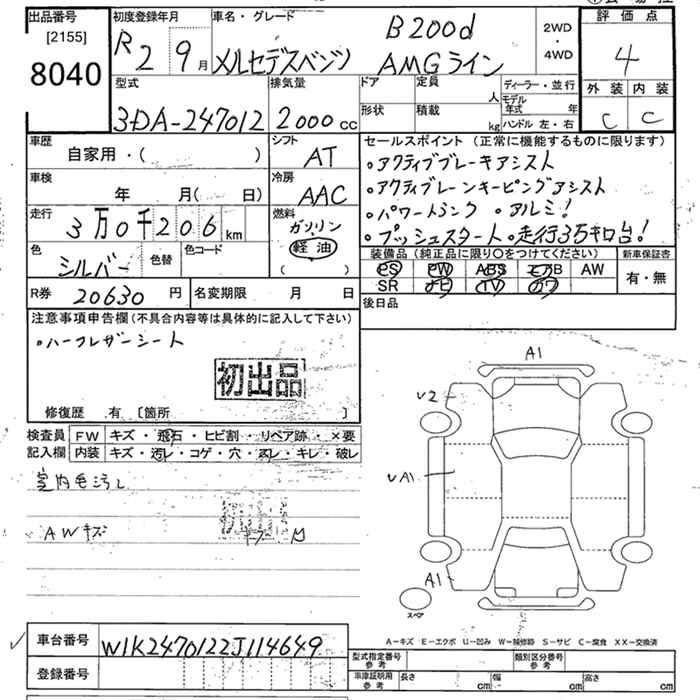 出品番号 初度登録年月 車名・グレード 評価点
[2155]
8040
R2 9月 メルセデスベンツ B200d AMGライン 2WD・4WD 4
型式 排気量 ドア 定員 人 ディーラー・並行 外装 内装
3DA-247012 2000cc 形状 積載 kg モデル年式 年 ハンドル 左・右 C C
車歴 シフト セールスポイント (正常に機能するものに限ります)
自家用・( ) AT ・アクティブブレーキアシスト
車検 冷房 ・アクティブレーンキーピングアシスト
年 月( 日) AAC ・パワートランク ・アルミ!
走行 3万0千206km 燃料 ガソリン 軽油 ( ) ・プッシュスタート ・走行3万キロ台!
色 シルバー 色替 色コード 装備品 (純正品に限り○をつけてください) 新車保証書
PS PW ABS エアB AW 有・無
R券 20630円 名変期限 月 日 SR ナビ TV カワ
注意事項申告欄 (不具合内容等は具体的に記入して下さい) 後日品
・ハーフレザーシート
初出品
修復歴 有 [箇所 ]
検査員 FW キズ・飛石・ヒビ割・リペア跡・×要
記入欄 内装 キズ・汚レ・コゲ・穴・スレ・キレ・破レ
室内毛汚レ
AWキズ
初出品
A1
V2
A1
A1
スペア
A-キズ E-エクボ U-凹み W-補修跡 S-サビ C-腐食 XX-交換済
車台番号 W1K2470122J114649
登録番号
型式指定番号 参考 類別区分番号 参考
車庫証明用 参考 長さ cm 幅 cm 高さ cm